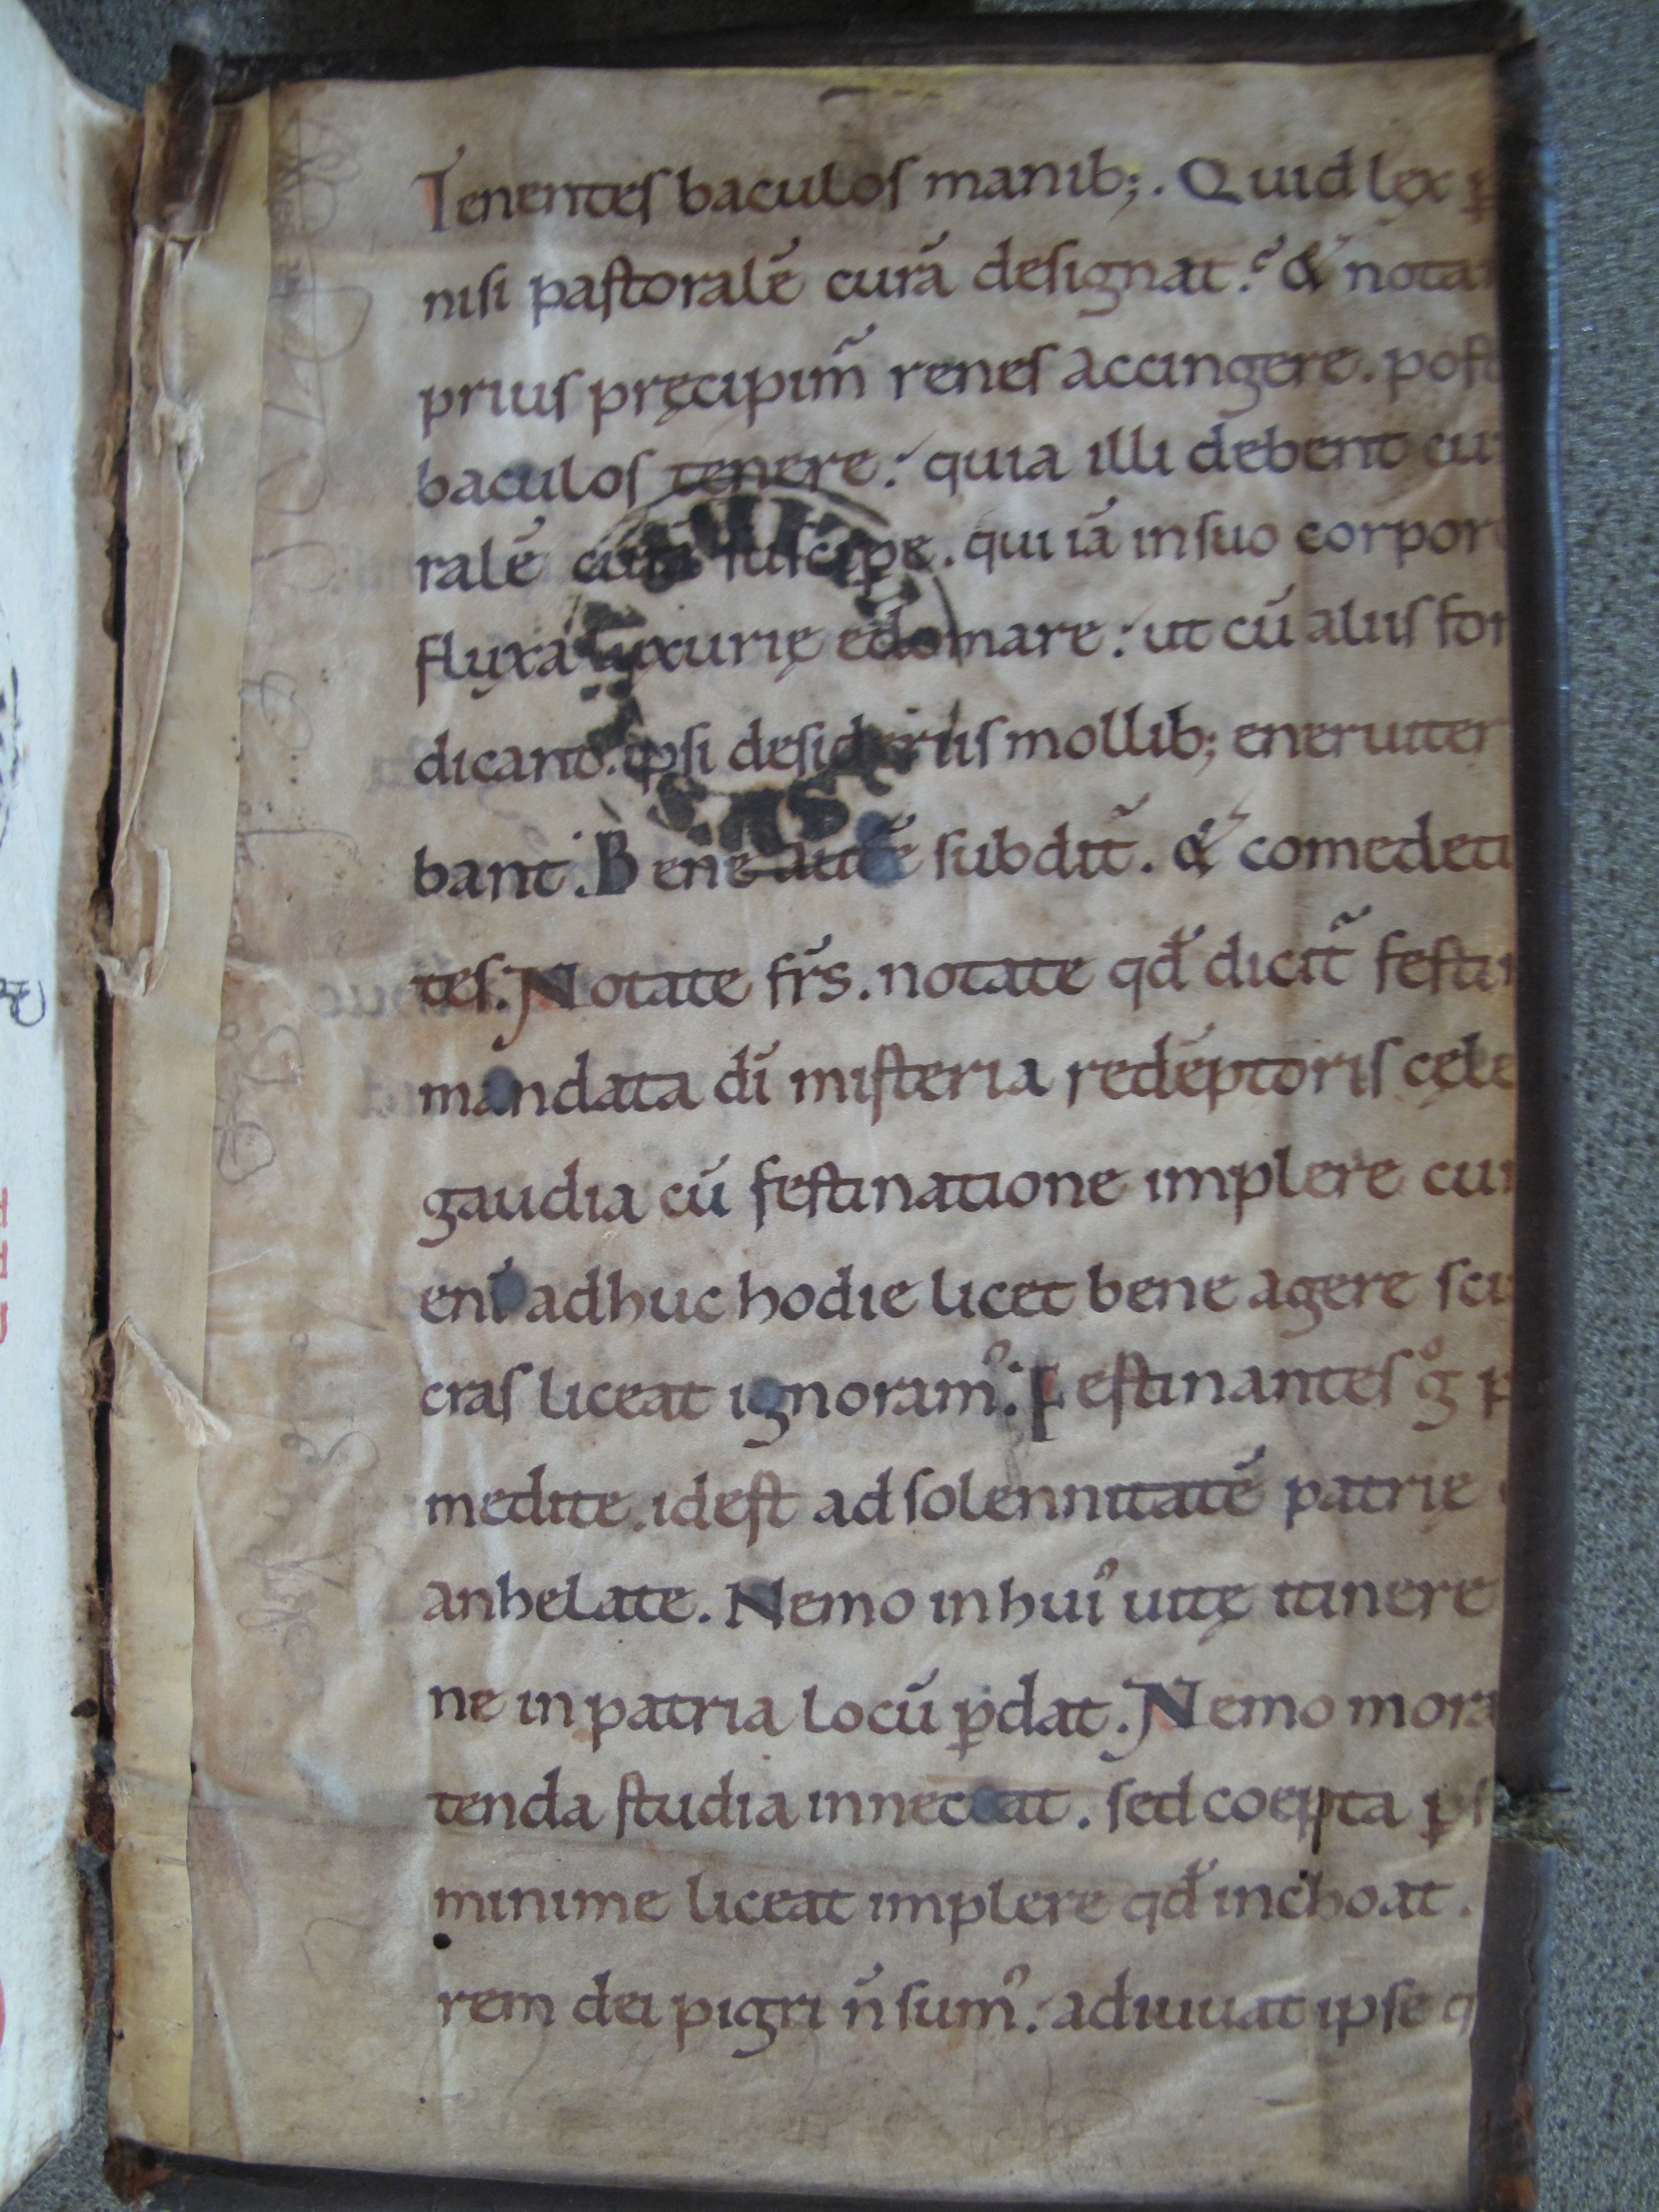 Tenentes baculos manib;. Quid lex p
nisi pastoralē curā designat.̉ & nota
prius pręcipim̃ renes accingere. post
baculos tenere. quia illi debent cu
ralē curā suscipe. qui iā in suo corpor
fluxa luxurię edomare. ut cū aliis for
dicant. ipsi desideriis mollib; eneruiter
bant. Bene autē subdit̃. & comedeti
tes. Notate fr̄s. notate qđ dicit̃ festi
mandata dī misteria redēptoris cęle
gaudia cū festinatione implere cu
enī adhuc hodie licet bene agere sci
cras liceat ignoram᾿. Festinantes gͦ p
medite. id est ad solennitatē patrię
anhelate. Nemo in hui᾿ uitę itinere
ne in patria locū p̱dat. Nemo mora
tenda studia innectat. sed coepta p̱
minime liceat implere qđ inchoat.
rem dei pigri n̄ sum᾿. adiuuat ipse q